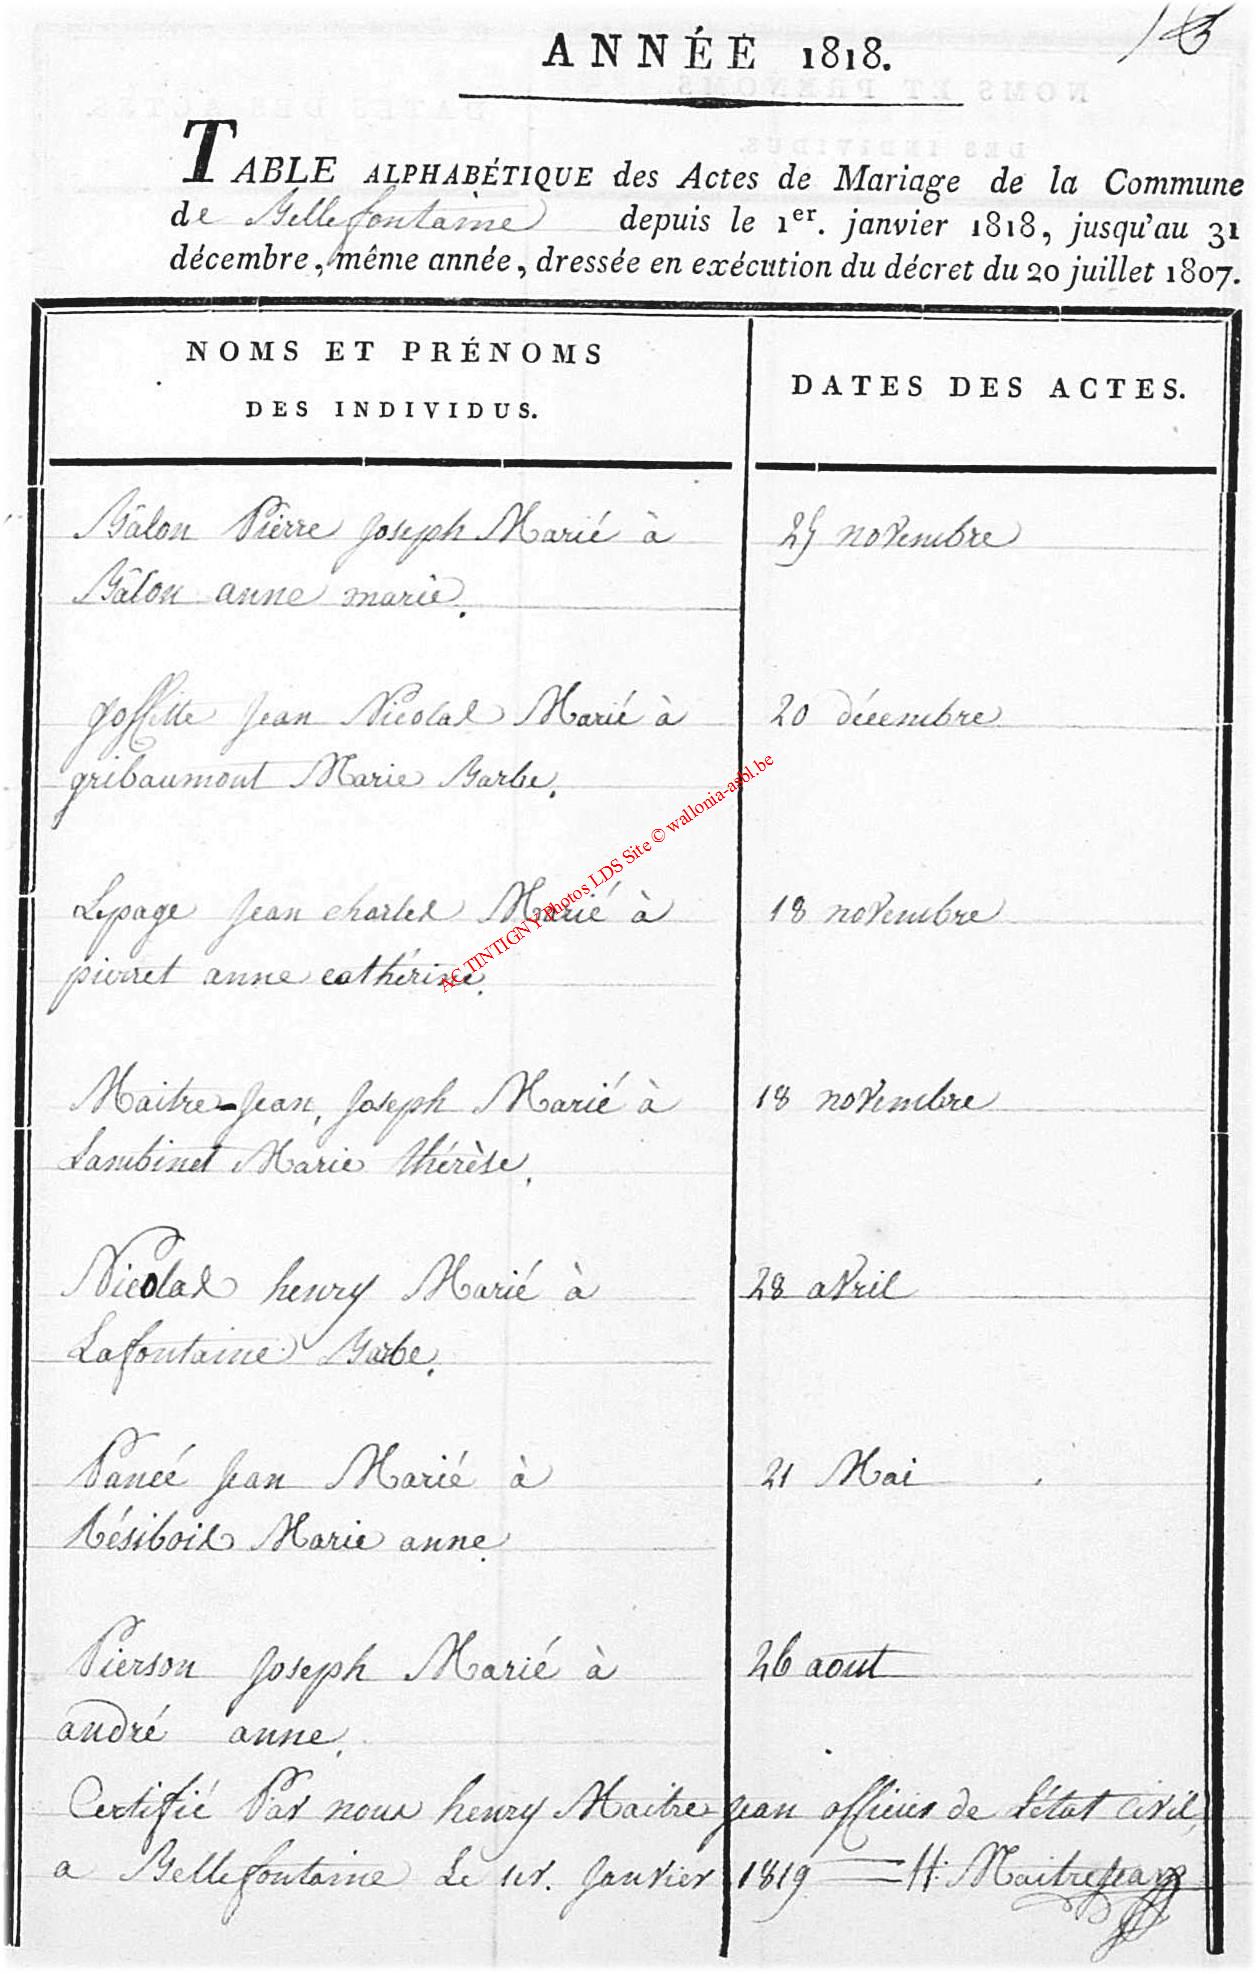 ANNÉE 1818.
TABLE ALPHABÉTIQUE des Actes de Mariage de la Commune
de Bellefontaine depuis le 1er. janvier 1818, jusqu'au 31
décembre, même année, dressée en exécution du décret du 20 juillet 1807.
NOMS ET PRÉNOMS
DES INDIVIDUS.
DATES DES ACTES.
Bâlon Pièrre Joseph Marié à 25 novembre
Bâlon anne marie.
goffette Jean Nicolas Marié à 20 décembre
gribaumont Marie Barbe.
Lepage Jean charles Marié à 18 novembre
pierret anne cathérine.
Maitre-Jean, Joseph Marié à 18 novembre
Lambinet Marie thérèse.
Nicolas henry Marié à 28 avril
Lafontaine Barbe.
Panéé Jean Marié à 21 Mai
Résibois Marie anne.
Pierson Joseph Marié à 26 aout
andré anne.
Certifié Par nous henry Maitre jean officier de L'état Civil,
a Bellefontaine Le 1er. Janvier 1819 H. Maitrejean
AC TINTIGNY Photos LDS Site © wallonia-asbl.be